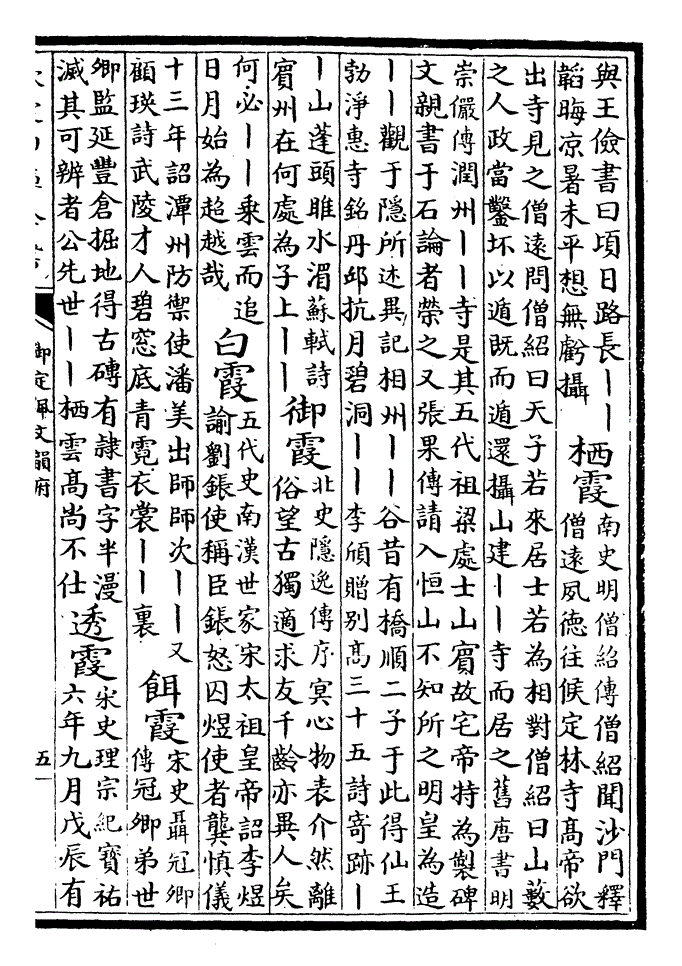 與王儉書曰頃日路長丨丨
韜晦凉暑未平想無虧攝
栖霞
南史明僧紹傳僧紹聞沙門釋
僧遠夙徳往候定林寺髙帝欲
出寺見之僧遠問僧紹曰天子若來居士若為相對僧紹曰山藪
之人政當鑿坏以遁既而遁還攝山建丨丨寺而居之舊唐書明
崇儼傳潤州丨丨寺是其五代祖梁處士山賔故宅帝特為製碑
文親書于石論者榮之又張果傳請入恒山不知所之明皇為造
丨丨觀于隱所述異記相州丨丨谷昔有橋順二子于此得仙王
勃淨惠寺銘丹邱抗月碧洞丨丨李頎贈别髙三十五詩寄跡丨
丨山蓬頭睢水湄蘇軾詩
賔州在何處為子上丨丨
御霞
北史隱逸傳序冥心物表介然離
俗望古獨適求友千齡亦異人矣
何必丨丨乗雲而追
日月始為超越哉
白霞
五代史南漢世家宋太祖皇帝詔李煜
諭劉鋹使稱臣鋹怒囚煜使者龔慎儀
十三年詔潭州防禦使潘美出師師次丨丨又
顧瑛詩武陵才人碧窓底青霓衣裳丨丨裏
餌霞
宋史聶冠卿
傳冠卿弟世
卿監延豐倉掘地得古磚有隷書字半漫
滅其可辨者公先世丨丨栖雲髙尚不仕
透霞
宋史理宗紀寳祐
六年九月戊辰有
御定佩文韻府
五